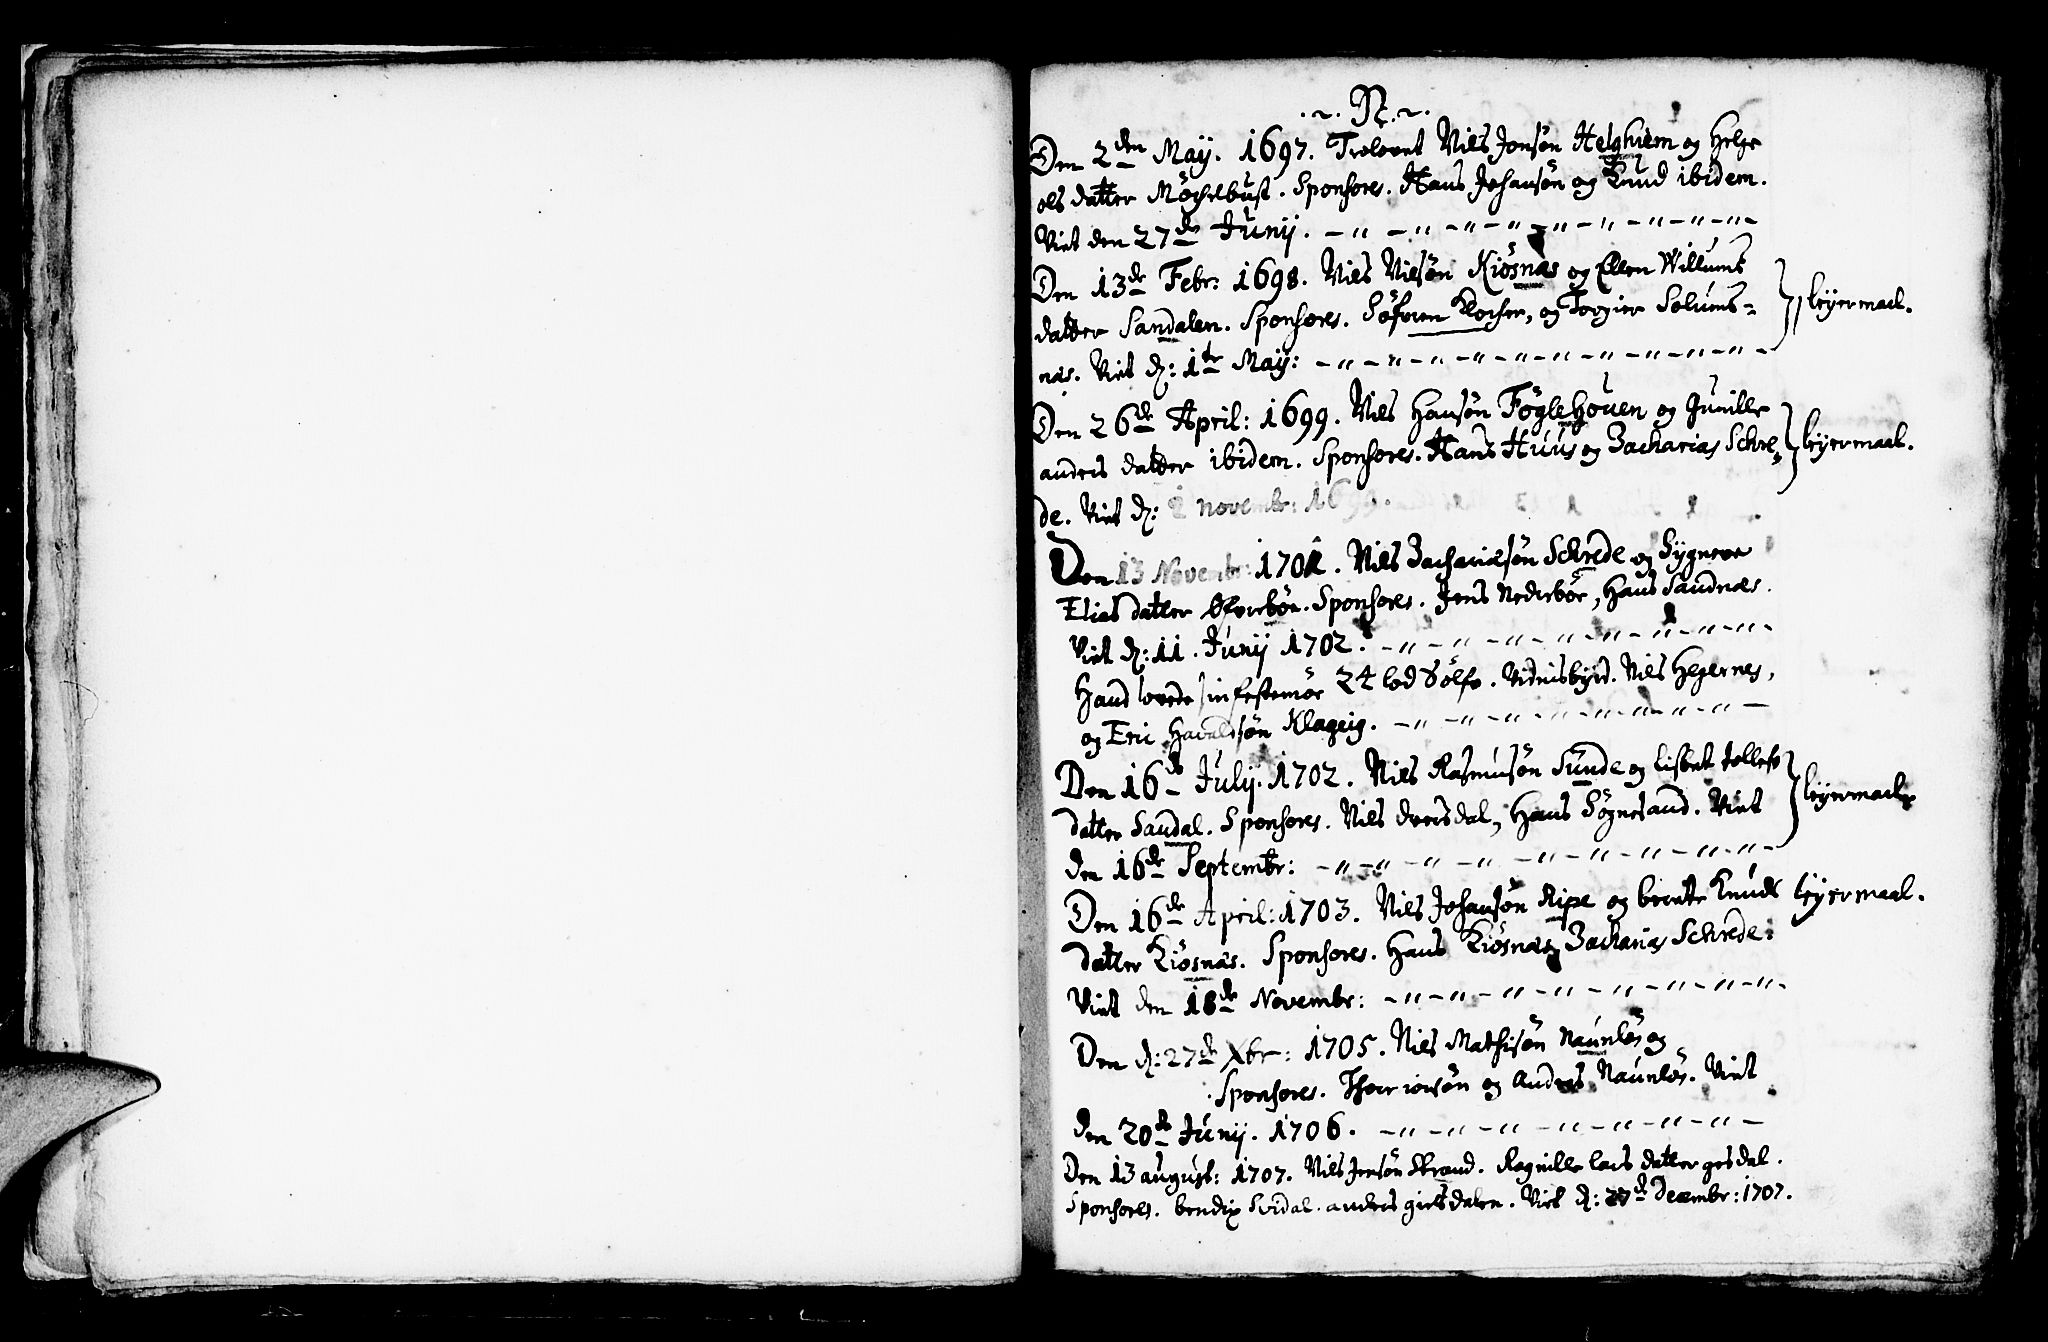 . ~ . N . ~ .
Den 2den Maij. 1697. Troloved Niels Jonsön Helghiem og Helge
ols datter Möchelbust. Sponsores. Hans Johansön og Knud ibidem.
Viet den 27de Junij. – " – " – " – " – " – " – " – " –
Den 13de Febr: 1698. Niels Nilsön Kiösnæs og Ellen Willums
datter Sandalen. Sponsores. Söfren Klocker, og Torgier Solums-
leÿermaal.
næs. Viet d: 1te Maij: – " – " – " – " – " – " – " – " –
Den 26de April: 1699. Niels Hansön Föglehouen og Gunille
anders datter ibidem. Sponsores. Hans Huus og Zacharias Schre-
leÿermaal.
de. Viet d: 2 novembr: 1699.
Den 13 Novembr: 1701. Niels Zachariæsön Schrede og Sygneve
Elias datter Öfverbön. Sponsores. Jens Nedreböe, Hans Sandnæs.
Viet d: 11. Junij 1702. – " – " – " – " – " – " – " –
Hand lovede sin festemör 24 lod Sölf. Vidnisbyrd. Niels Hegernes,
og Eric Havaldsön Klageig. – " – " – " – " – " – " –
Den 16de Julij. 1702. Niels Rasmusön Sunde og Lisbet Tollefs
datter Sandal. Sponsores. Niels Dvergsdal, Hans Sögnesand. Viet
leÿermaal
den 16de Septembr: – " – " – " – " – " – " – " –
Den 16de April: 1703. Niels Johansön Ripe og berete Knuds leÿermaal.
datter Kiösnæs. Sponsores. Hans Kiösnæs, Zacharias Schrede:
Viet den 18de Novembr: – " – " – " – " – " – " – " –
Den d: 27de Xbr: 1705. Niels Mathisön Naunlös og
Sponsores. Thoer ionsön og Anders Naunlös. Viet
den 20de Junij. 1706. – " – " – " – " – " – " –
Den 13 august: 1707. Niels Jensön Strand. Ragnille lars datter gesdal.
Sponsores. bendix Svidal. anders giesdalen. Viet d: 27de Decembr: 1707.